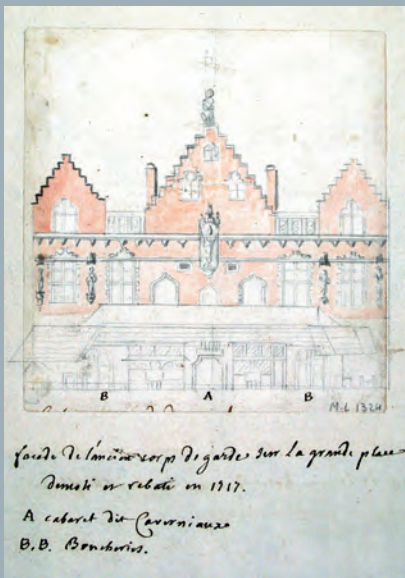 B A B
M.L 1324
façade de l'ancien corps de garde sur la grande place
demoli et rebati en 1717.
A cabaret dit Caverniaux
B.B. Boucheries.